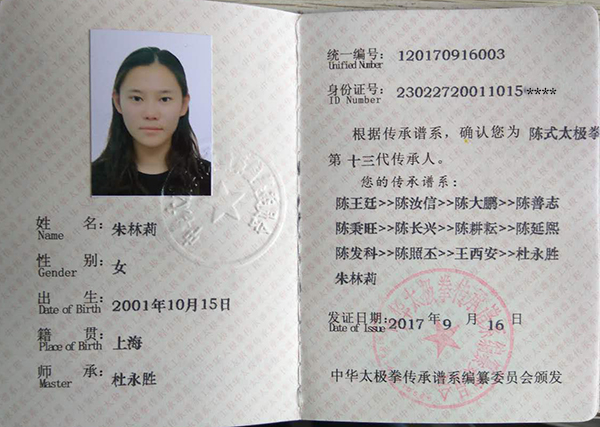 姓 名: 朱林莉
Name
性 别: 女
Gender
出 生: 2001年10月15日
Date of Birth
籍 贯: 上海
Place of Birth
师 承: 杜永胜
Master
统一编号: 120170916003
Unified Number
身份证号: 23022720011015****
ID Number
根据传承谱系,确认您为 陈式太极拳
第 十三代传承人。
您的传承谱系:
陈王廷>>陈汝信>>陈大鹏>>陈善志
陈秉旺>>陈长兴>>陈耕耘>>陈延熙
陈发科>>陈照丕>>王西安>>杜永胜
朱林莉
发证日期: 2017 年 9 月 16 日
Date of Issue
中华太极拳传承谱系编纂委员会颁发